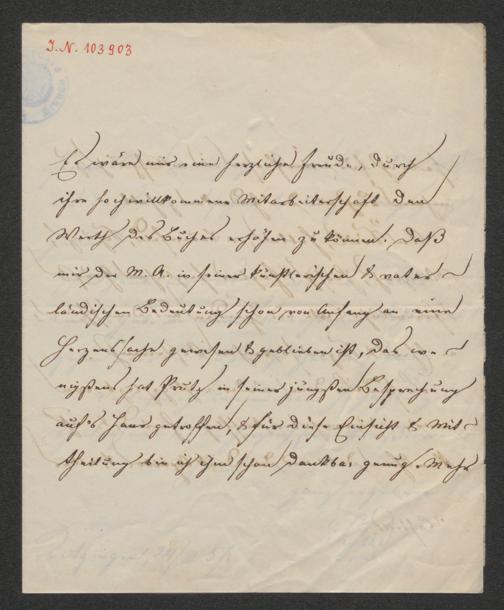 J. N. 103903
Es wäre mir eine herzliche Freude, durch
ihre hochwillkommene Mitarbeiterschaft den
Werth des Buches erhöhen zu können. Daß
mir der M. A. in seiner künstlerischen & vater-
ländischen Bedeutung schon von Anfang an eine
Herzenssache gewesen & geblieben ist, das we-
nigstens hat Prutz in seiner jüngsten Besprechung
auf's Haar getroffen, & für diese Einsicht & Mit-
theilung bin ich ihm schon dankbar genug. Mehr